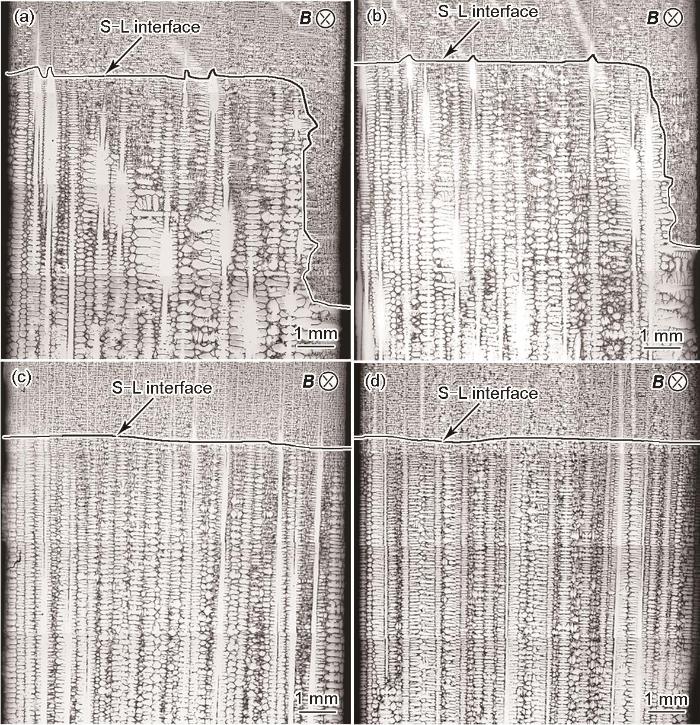 (a)
S-L interface
B ⊗
1 mm
(b)
S-L interface
B ⊗
1 mm
(c)
S-L interface
B ⊗
1 mm
(d)
S-L interface
B ⊗
1 mm